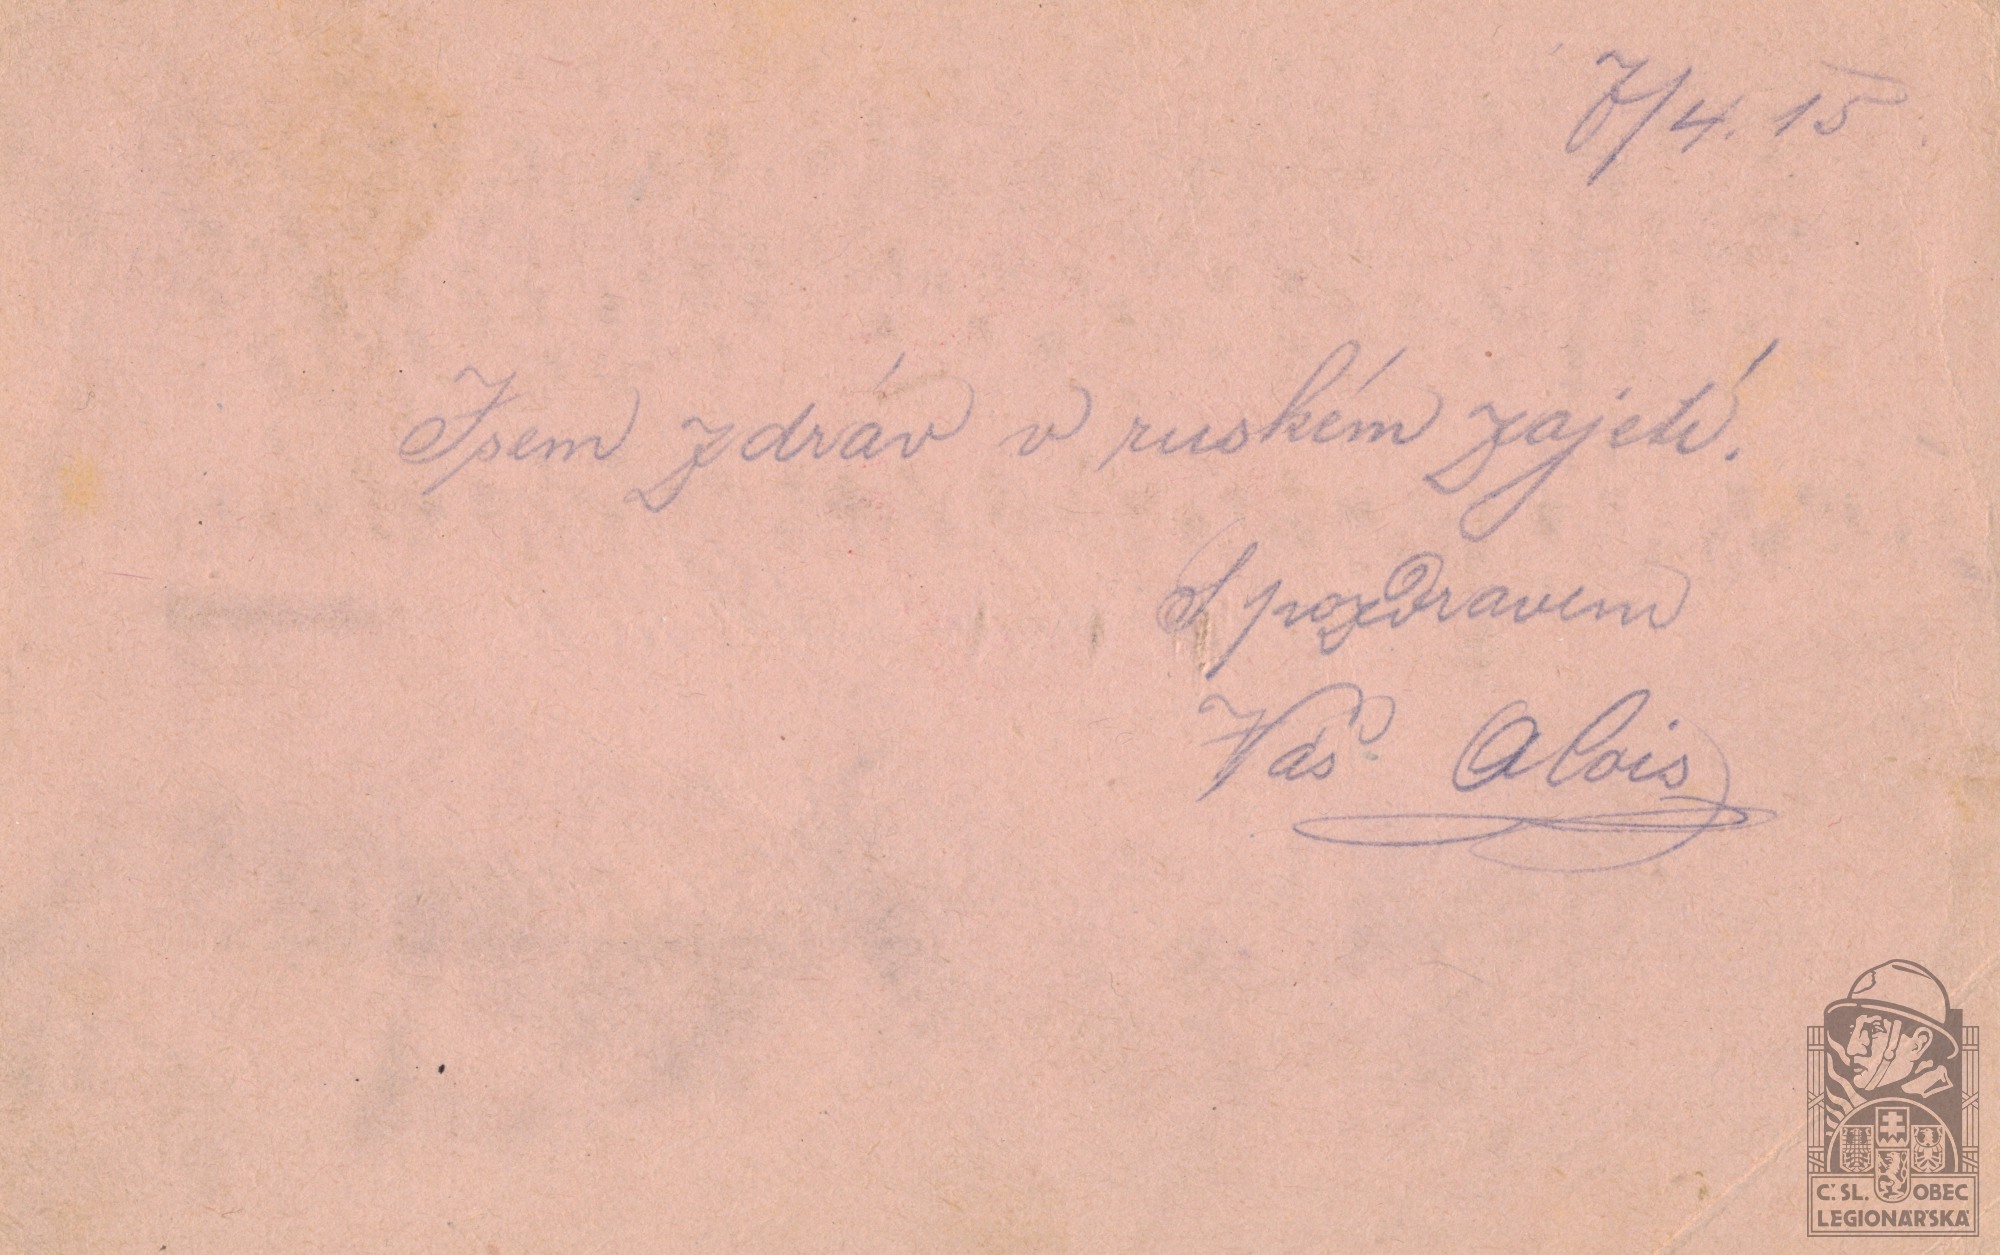 7/4. 15.
Jsem zdráv v ruském zajetí.
S pozdravem
Váš Alois
Č. SL. OBEC
LEGIONÁŘSKÁ